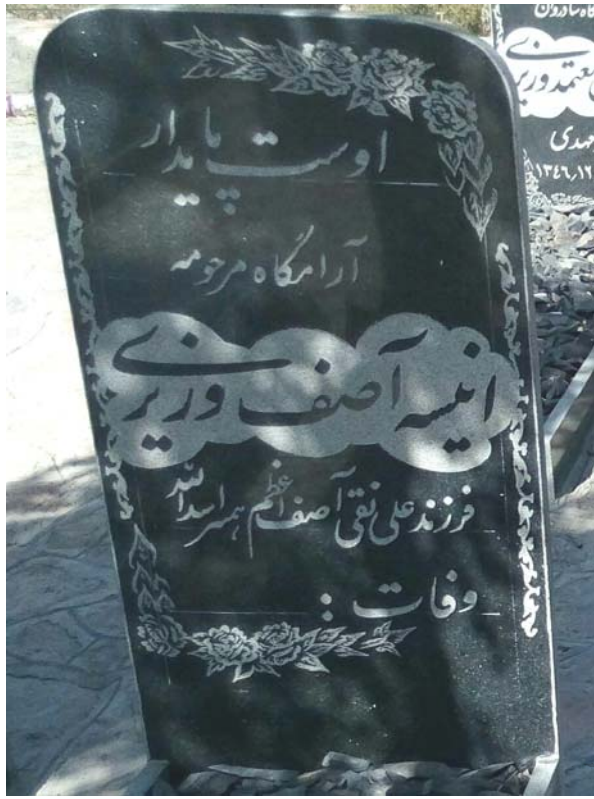 اوست پایدار
آرامگاه مرحومه
انیسه آصف وزیری
فرزند علی نقی آصف اعظم همسر اسدالله
وفات :
معتمد وزیری
مهدی